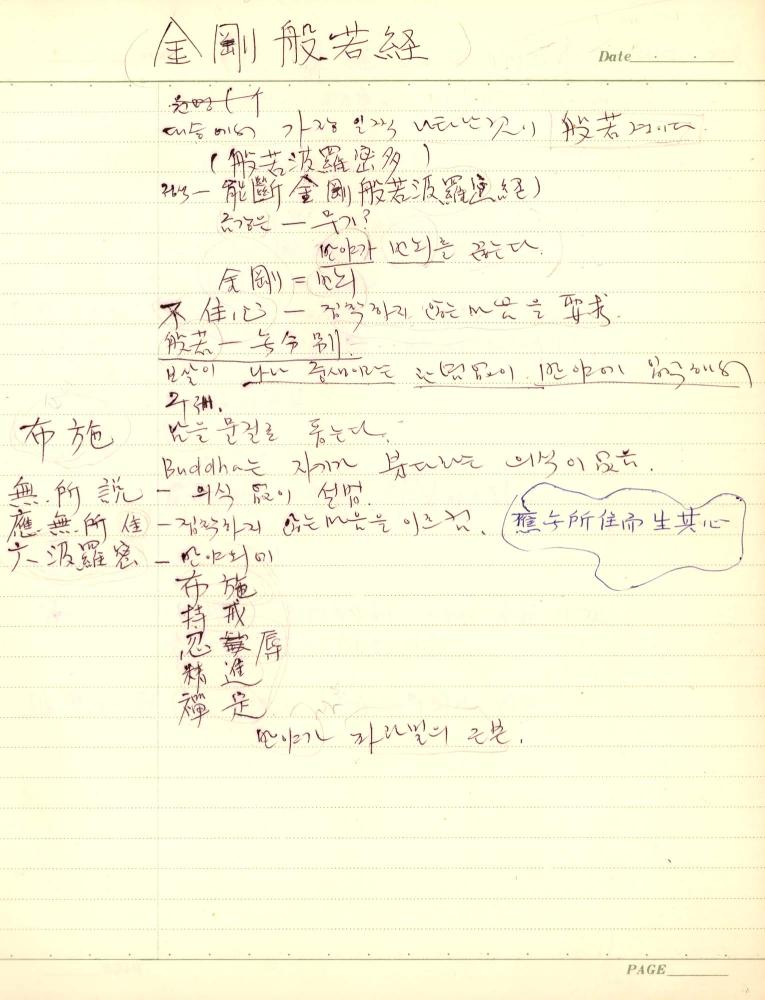 (金剛般若経)
Date
대승에서 가장 일찍 나타난 것이 般若경이다.
(般若波羅密多)
能斷金剛般若波羅密経)
금강은 — 무기?
반야가 번뇌를 끊는다.
金剛 = 번뇌
不住心 — 집착하지 않는 마음을 要求.
般若 — 무분別.
보살이 나나 중생이라는 관념없이 반야에 입각해서
구제.
布施 남을 물질로 돕는다.
Buddha는 자기가 붓다라는 의식이 없음.
無所説 — 의식 없이 설법.
應無所住 — 집착하지 않는 마음을 일으킴.
應無所住而生其心
六波羅密 — 반야외에
布施
持戒
忍辱
精進
禪定
반야가 바라밀의 근본.
PAGE